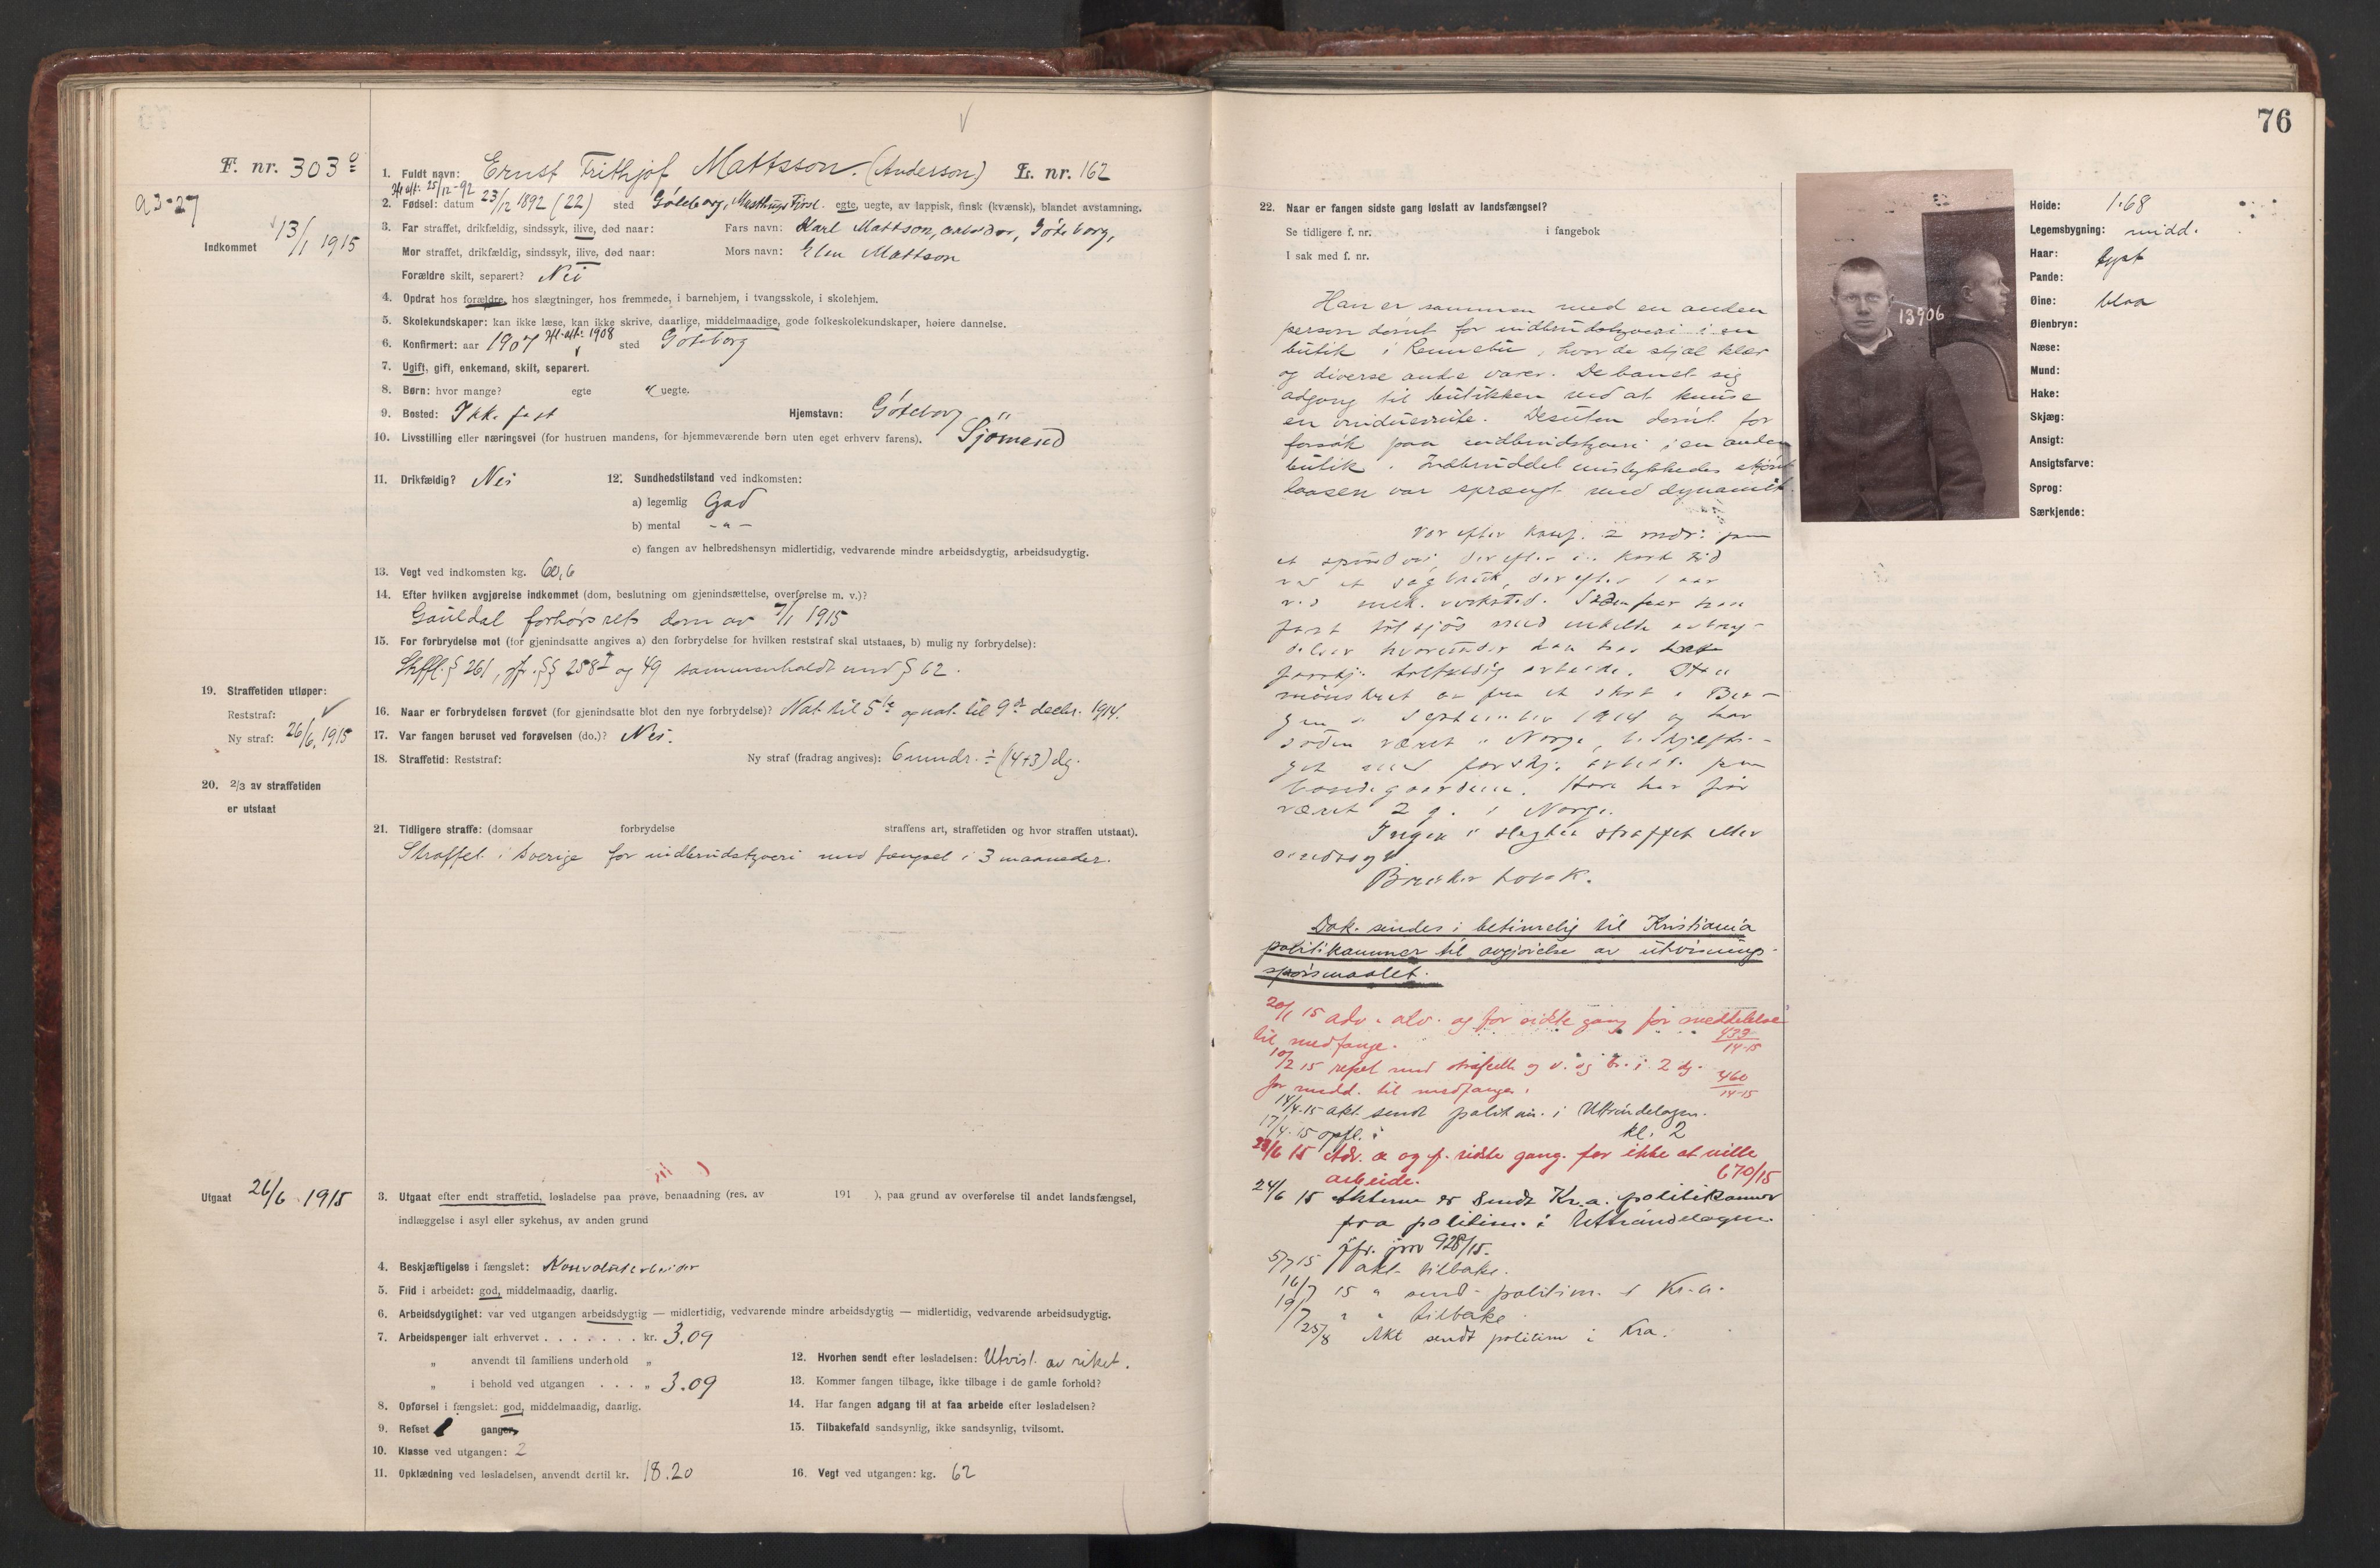 76
F. nr. 303
a3-27
Indkommet 13/1 1915
1. Fuldt navn: Ernst Frithjof Mattsson. (Anderson) L. nr. 162
25/12-92
2. Fødsel: datum 23/12 1892 (22) sted Göteborg, egte, uegte, av lappisk, finsk (kvænsk), blandet avstamning.
3. Far straffet, drikfældig, sindssyk, ilive, død naar: Fars navn: Karl Mattson, arbeider, Göteborg,
Mor straffet, drikfældig, sindssyk, ilive, død naar: Mors navn: Elen Mattson
Forældre skilt, separert? Nei
4. Opdrat hos forældre, hos slægtninger, hos fremmede, i barnehjem, i tvangsskole, i skolehjem.
5. Skolekundskaper: kan ikke læse, kan ikke skrive, daarlige, middelmaadige, gode folkeskolekundskaper, høiere dannelse.
6. Konfirmert: aar 1907 1908 sted Göteborg
7. Ugift, gift, enkemand, skilt, separert.
8. Børn: hvor mange? egte uegte.
9. Bosted: Ikke fast Hjemstavn: Göteborg
10. Livsstilling eller næringsvei (for hustruen mandens, for hjemmeværende børn uten eget erhverv farens). Sjömand
11. Drikfældig? Nei 12. Sundhedstilstand ved indkomsten:
a) legemlig God
b) mental - " -
c) fangen av helbredshensyn midlertidig, vedvarende mindre arbeidsdygtig, arbeidsudygtig.
13. Vegt ved indkomsten kg. 60,6
14. Efter hvilken avgjørelse indkommet (dom, beslutning om gjenindsættelse, overførelse m. v.)?
Gauldal forhørsrets dom av 7/1 1915
15. For forbrydelse mot (for gjenindsatte angives a) den forbrydelse for hvilken reststraf skal utstaaes, b) mulig ny forbrydelse):
Strffl. § 261, jfr. §§ 258 I og 49 sammenholdt med § 62.
19. Straffetiden utløper:
Reststraf:
Ny straf: 26/6, 1915
16. Naar er forbrydelsen forøvet (for gjenindsatte blot den nye forbrydelse)? Nat til 5te og nat til 9de decbr. 1914.
17. Var fangen beruset ved forøvelsen (do.)? Nei.
18. Straffetid: Reststraf: Ny straf (fradrag angives): 6 mndr. ÷ (14+3) dg.
20. 2/3 av straffetiden
er utstaat
21. Tidligere straffe: (domsaar forbrydelse straffens art, straffetiden og hvor straffen utstaat).
Straffet i Sverige for indbrudstyveri med fængsel i 3 maaneder.
Utgaat 26/6 1915
3. Utgaat efter endt straffetid, løsladelse paa prøve, benaadning (res. av 191 ), paa grund av overførelse til andet landsfængsel,
indlæggelse i asyl eller sykehus, av anden grund
4. Beskjæftigelse i fængslet: Konvolutarbeider
5. Flid i arbeidet: god, middelmaadig, daarlig.
6. Arbeidsdygtighet: var ved utgangen arbeidsdygtig — midlertidig, vedvarende mindre arbeidsdygtig — midlertidig, vedvarende arbeidsudygtig.
7. Arbeidspenger ialt erhvervet . . . . . . . kr. 3.09
" anvendt til familiens underhold "
" i behold ved utgangen . . . . " 3.09
8. Opførsel i fængslet: god, middelmaadig, daarlig.
9. Refset 1 ganger
10. Klasse ved utgangen: 2
11. Opklædning ved løsladelsen, anvendt dertil kr. 18.20
12. Hvorhen sendt efter løsladelsen: Utvist av riket.
13. Kommer fangen tilbage, ikke tilbage i de gamle forhold?
14. Har fangen adgang til at faa arbeide efter løsladelsen?
15. Tilbakefald sandsynlig, ikke sandsynlig, tvilsomt.
16. Vegt ved utgangen: kg. 62
22. Naar er fangen sidste gang løslatt av landsfængsel?
Se tidligere f. nr. i fangebok
I sak med f. nr.
Han er sammen med en anden
person dømt for indbrudstyveri i en
butik i Rennebu, hvor de stjal klær
og diverse andre varer. De banet sig
adgang til butikken ved at knuse
en vinduesrute. Desuten dømt for
forsøk paa indbrudstyveri i en anden
butik. Indbruddet mislykkedes skjønt
laasen var sprængt med dynamit
Var efter konf. 2 mdr. paa
et spinderi, derefter en kort tid
ved et sagbruk, derefter 1 aar
ved mek. verksted. Siden faor han
fart tilsjös med enkelte avbry-
delser hvorunder han har hat
forskj. tilfældig arbeide. Han
mönstret av fra et skib i Ber-
gen i September 1914 og har
siden været i Norge, beskjæfti-
get med forskj. arbeide paa
bondegaardene. Han har för
været 2 g. i Norge.
Ingen i slegten straffet eller
sindssyk.
Bruker tobak.
Dok. sendes i betimelig til Kristiania
politikammer til avgjørelse av utvisnings-
spørsmaalet.
20/1 15 adv. alv. og for sidste gang for meddelelse
til medfange. 433/14-15
10/2 15 refset med strafcelle og v. og br. i 2 dg.
for medd. til medfange. 460/14-15
14/4-15 akt. sendt politim. i Uttrøndelagen.
17/4-15 opfl. i kl. 2
23/6 15 Adv. a og f. sidste gang. for ikke at ville
arbeide. 670/15
24/6 15 Akterne er sendt Kr.a. politikammer
fra politim. i Uttrøndelagen.
jfr. jnr 928/15.
5/7 15 akt. tilbake.
16/7 15 " send. politim. i Kr.a.
19/7 " " tilbake
25/8 Akt sendt politim i Kra.
13906
Høide: 1.68
Legemsbygning: midd.
Haar: lyst
Pande:
Øine: blaa
Øienbryn:
Næse:
Mund:
Hake:
Skjæg:
Ansigt:
Ansigtsfarve:
Sprog:
Særkjende: